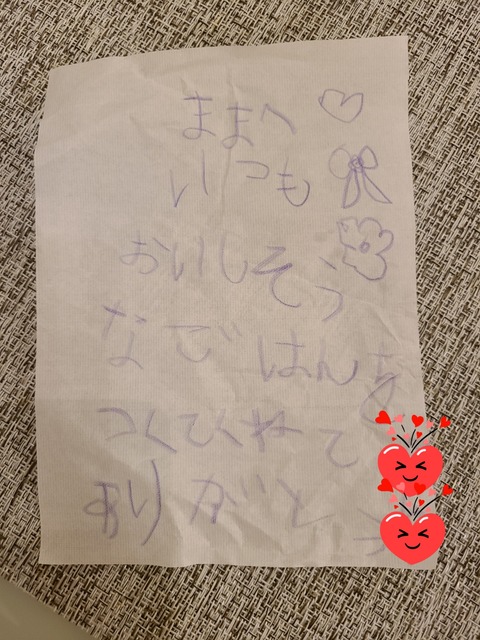 ままへ
いつも
おいしそう
なごはんを
つくてくれて
ありがとう